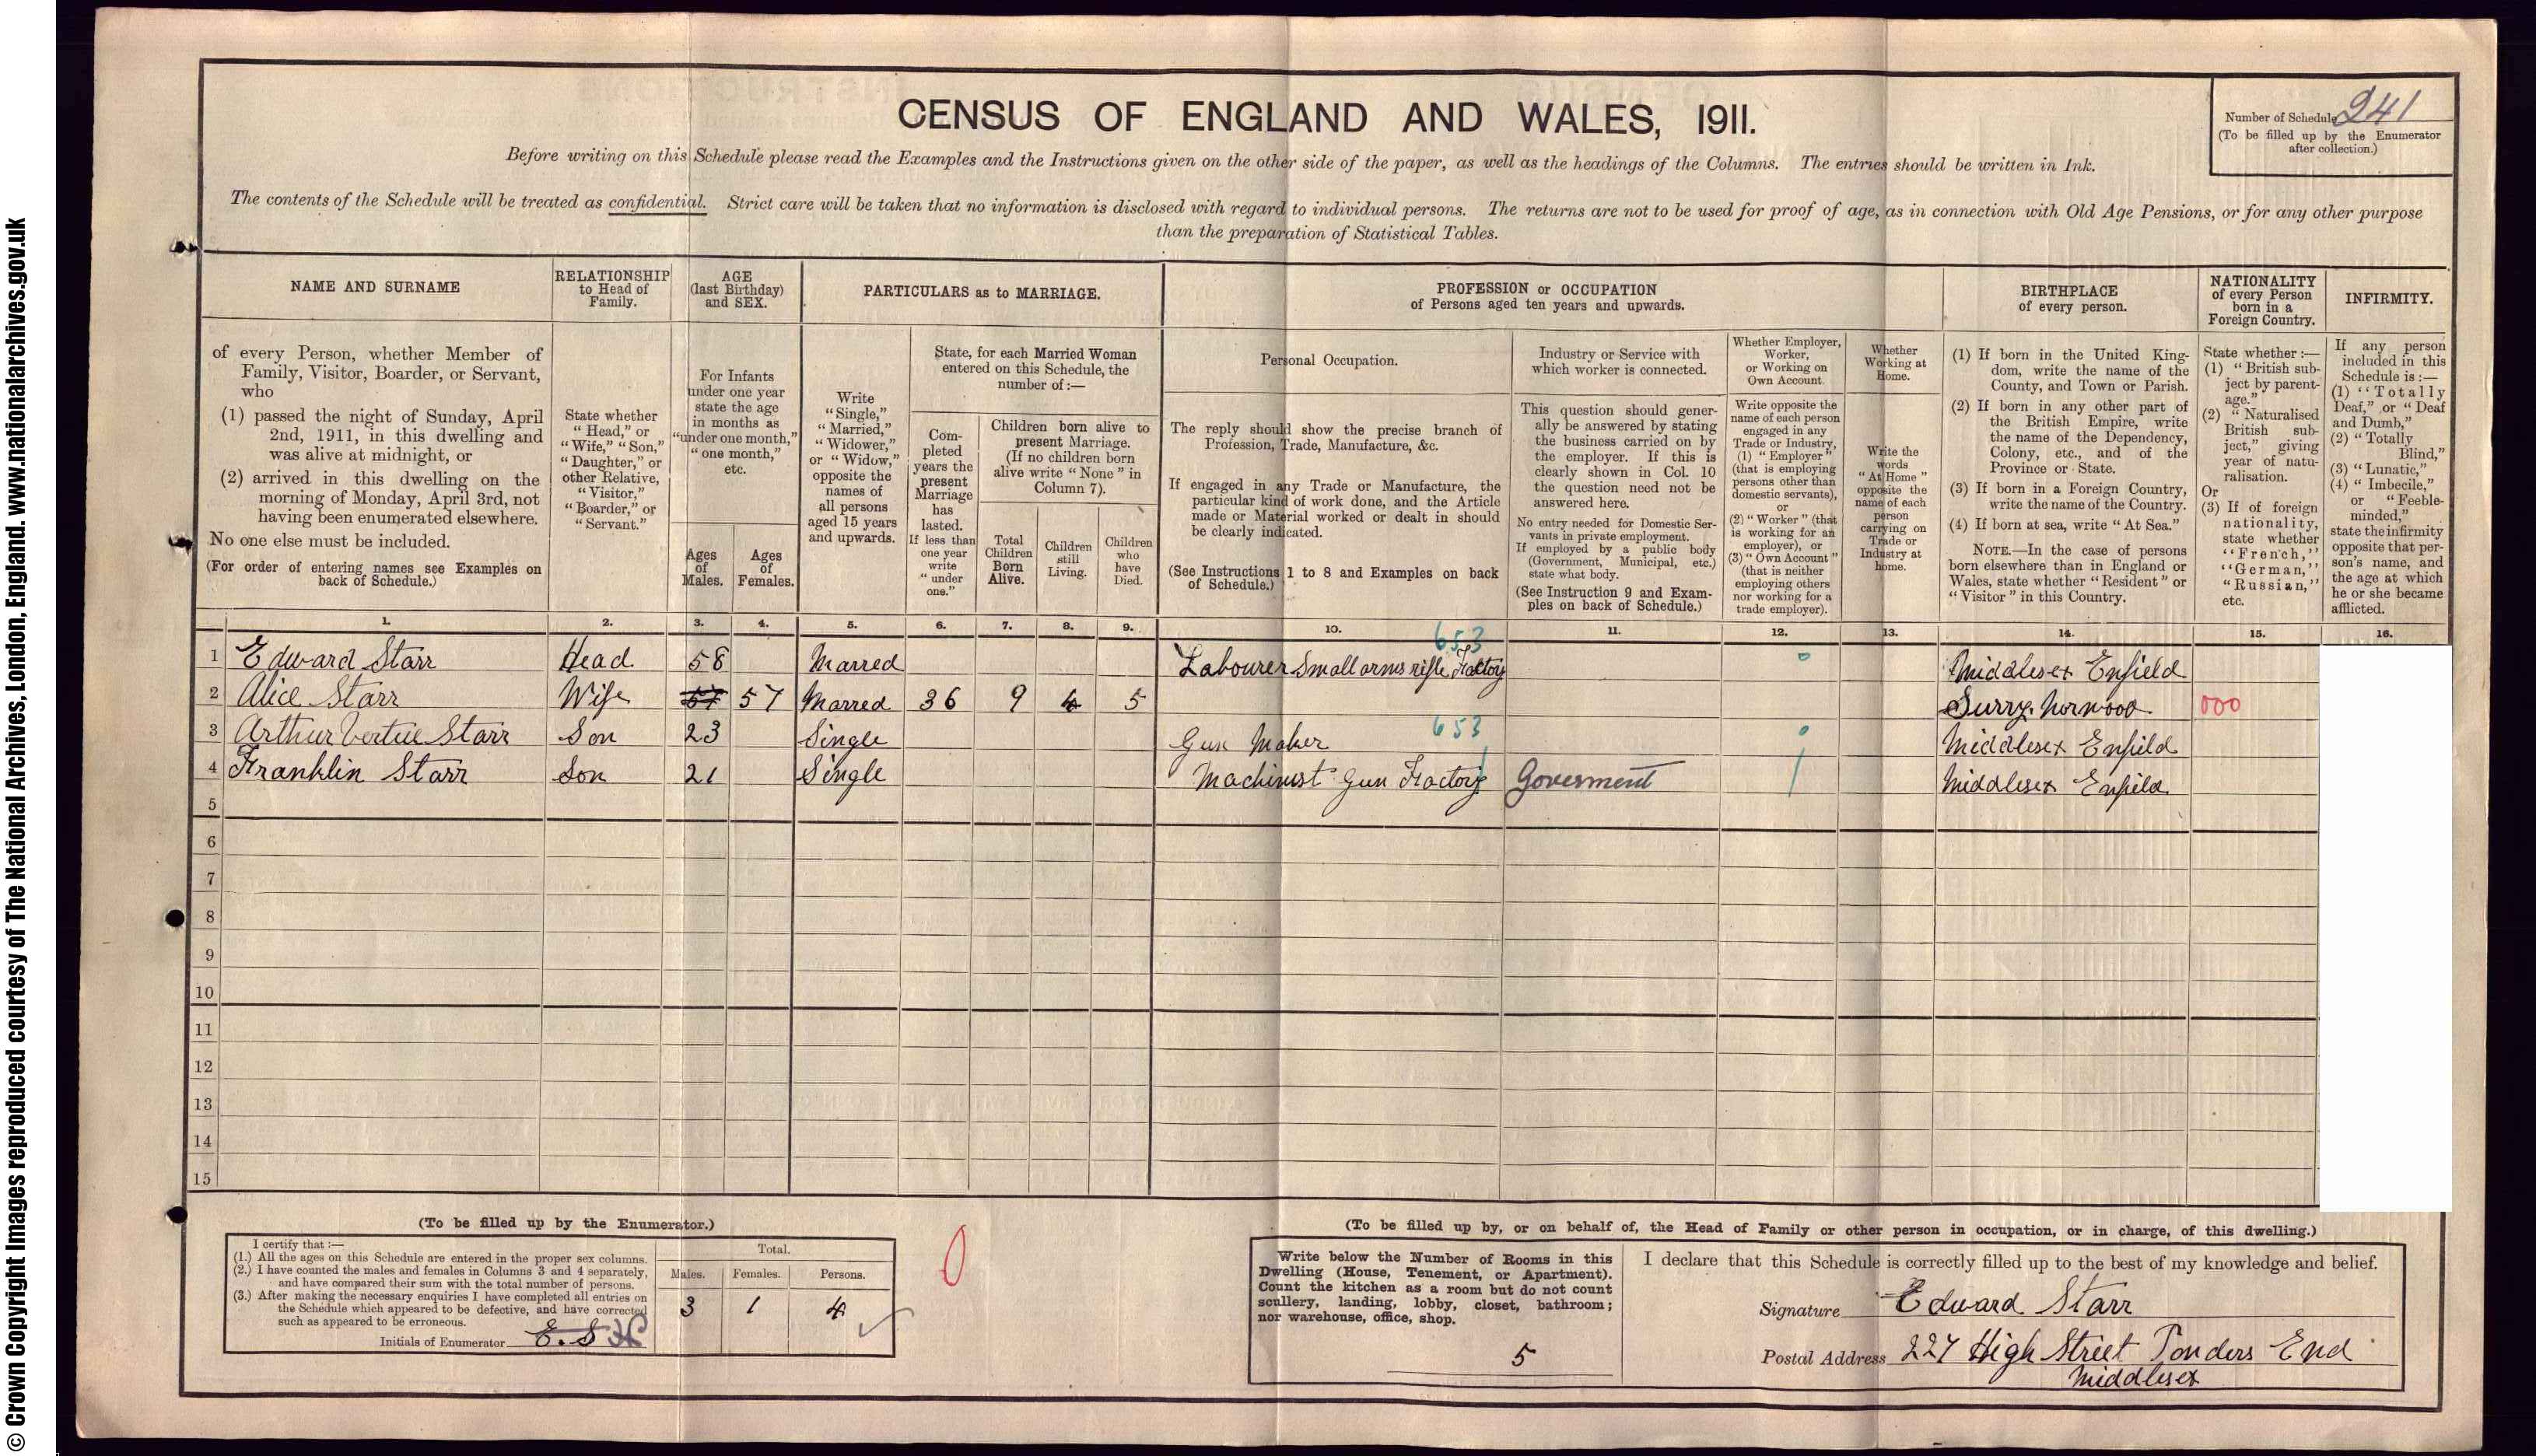 © Crown Copyright Images reproduced courtesy of The National Archives, London, England. www.nationalarchives.gov.uk
CENSUS OF ENGLAND AND WALES, 1911.
Number of Schedule 241
(To be filled up by the Enumerator
after collection.)
Before writing on this Schedule please read the Examples and the Instructions given on the other side of the paper, as well as the headings of the Columns. The entries should be written in Ink.
The contents of the Schedule will be treated as confidential. Strict care will be taken that no information is disclosed with regard to individual persons. The returns are not to be used for proof of age, as in connection with Old Age Pensions, or for any other purpose
than the preparation of Statistical Tables.
NAME AND SURNAME
of every Person, whether Member of
Family, Visitor, Boarder, or Servant,
who
(1) passed the night of Sunday, April
2nd, 1911, in this dwelling and
was alive at midnight, or
(2) arrived in this dwelling on the
morning of Monday, April 3rd, not
having been enumerated elsewhere.
No one else must be included.
(For order of entering names see Examples on
back of Schedule.)
RELATIONSHIP
to Head of
Family.
State whether
"Head," or
"Wife," "Son,"
"Daughter," or
other Relative,
"Visitor,"
"Boarder," or
"Servant."
AGE
(last Birthday)
and SEX.
For Infants
under one year
state the age
in months as
"under one month,"
"one month,"
etc.
Ages
of
Males.
Ages
of
Females.
PARTICULARS as to MARRIAGE.
Write
"Single,"
"Married,"
"Widower,"
or "Widow,"
opposite the
names of
all persons
aged 15 years
and upwards.
State, for each Married Woman
entered on this Schedule, the
number of:—
Com-
pleted
years the
present
Marriage
has
lasted.
If less than
one year
write
"under
one."
Children born alive to
present Marriage.
(If no children born
alive write "None" in
Column 7).
Total
Children
Born
Alive.
Children
still
Living.
Children
who
have
Died.
PROFESSION or OCCUPATION
of Persons aged ten years and upwards.
Personal Occupation.
The reply should show the precise branch of
Profession, Trade, Manufacture, &c.
If engaged in any Trade or Manufacture, the
particular kind of work done, and the Article
made or Material worked or dealt in should
be clearly indicated.
(See Instructions 1 to 8 and Examples on back
of Schedule.)
Industry or Service with
which worker is connected.
This question should gener-
ally be answered by stating
the business carried on by
the employer. If this is
clearly shown in Col. 10
the question need not be
answered here.
No entry needed for Domestic Ser-
vants in private employment.
If employed by a public body
(Government, Municipal, etc.)
state what body.
(See Instruction 9 and Exam-
ples on back of Schedule.)
Whether Employer,
Worker,
or Working on
Own Account.
Write opposite the
name of each person
engaged in any
Trade or Industry,
(1) "Employer"
(that is employing
persons other than
domestic servants),
or
(2) "Worker" (that
is working for an
employer), or
(3) "Own Account"
(that is neither
employing others
nor working for a
trade employer).
Whether
Working at
Home.
Write the
words
"At Home"
opposite the
name of each
person
carrying on
Trade or
Industry at
home.
BIRTHPLACE
of every person.
(1) If born in the United King-
dom, write the name of the
County, and Town or Parish.
(2) If born in any other part of
the British Empire, write
the name of the Dependency,
Colony, etc., and of the
Province or State.
(3) If born in a Foreign Country,
write the name of the Country.
(4) If born at sea, write "At Sea."
NOTE.—In the case of persons
born elsewhere than in England or
Wales, state whether "Resident" or
"Visitor" in this Country.
NATIONALITY
of every Person
born in a
Foreign Country.
State whether:—
(1) "British sub-
ject by parent-
age."
(2) "Naturalised
British sub-
ject," giving
year of natu-
ralisation.
Or
(3) If of foreign
nationality,
state whether
"French,"
"German,"
"Russian,"
etc.
INFIRMITY.
If any person
included in this
Schedule is:—
(1) "Totally
Deaf," or "Deaf
and Dumb,"
(2) "Totally
Blind,"
(3) "Lunatic,"
(4) "Imbecile,"
or "Feeble-
minded,"
state the infirmity
opposite that per-
son's name, and
the age at which
he or she became
afflicted.
1. 2. 3. 4. 5. 6. 7. 8. 9. 10. 11. 12. 13. 14. 15. 16.
653
1 Edward Starr Head 58 Marred Labourer Small arms rifle Factory 0 Middlesex Enfield
2 Alice Starr Wife 57 57 Marred 36 9 4 5 Surry Norwood 000
653
3 Arthur Vertue Starr Son 23 Single Gun Maker 0 Middlesex Enfield
4 Franklin Starr Son 21 Single Machinist Gun Factory Goverment 1 Middlesex Enfield
5
6
7
8
9
10
11
12
13
14
15
(To be filled up by the Enumerator.)
I certify that:—
(1.) All the ages on this Schedule are entered in the proper sex columns.
(2.) I have counted the males and females in Columns 3 and 4 separately,
and have compared their sum with the total number of persons.
(3.) After making the necessary enquiries I have completed all entries on
the Schedule which appeared to be defective, and have corrected
such as appeared to be erroneous.
Initials of Enumerator E. S
Total.
Males. Females. Persons.
3 1 4
0
(To be filled up by, or on behalf of, the Head of Family or other person in occupation, or in charge, of this dwelling.)
Write below the Number of Rooms in this
Dwelling (House, Tenement, or Apartment).
Count the kitchen as a room but do not count
scullery, landing, lobby, closet, bathroom;
nor warehouse, office, shop.
5
I declare that this Schedule is correctly filled up to the best of my knowledge and belief.
Signature Edward Starr
Postal Address 227 High Street Ponders End
Middlesex